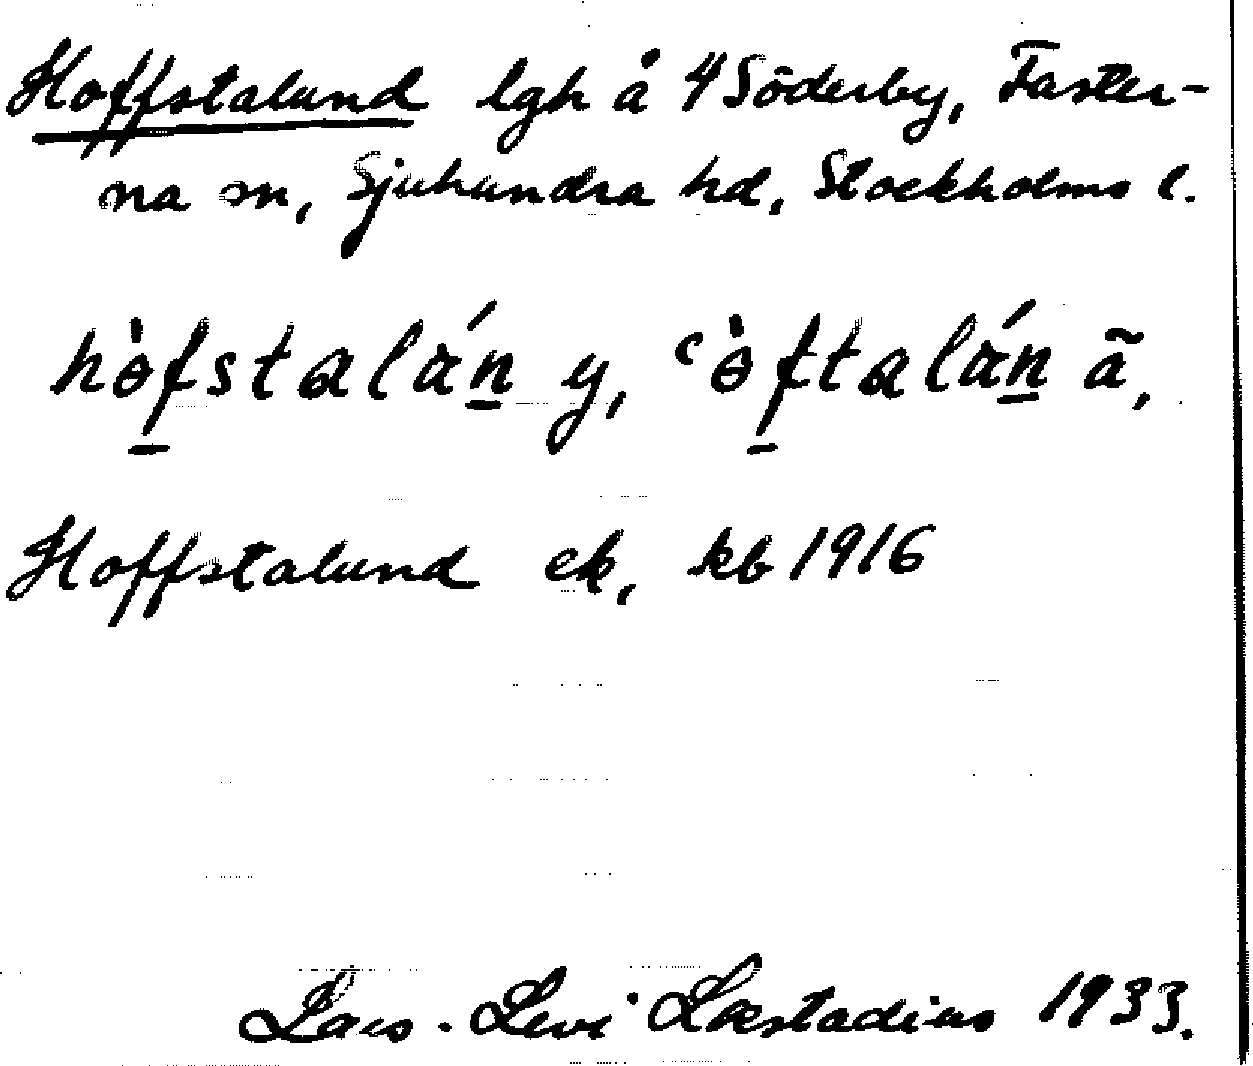 Hoffstalund lgh å 4 Söderby, Faster-
na sn, Sjuhundra hd, Stockholms l.
hɵ̀fstalán y, ʿɵ̀ftalán ã,
Hoffstalund ek, kb 1916
Lars-Levi Læstadius 1933.